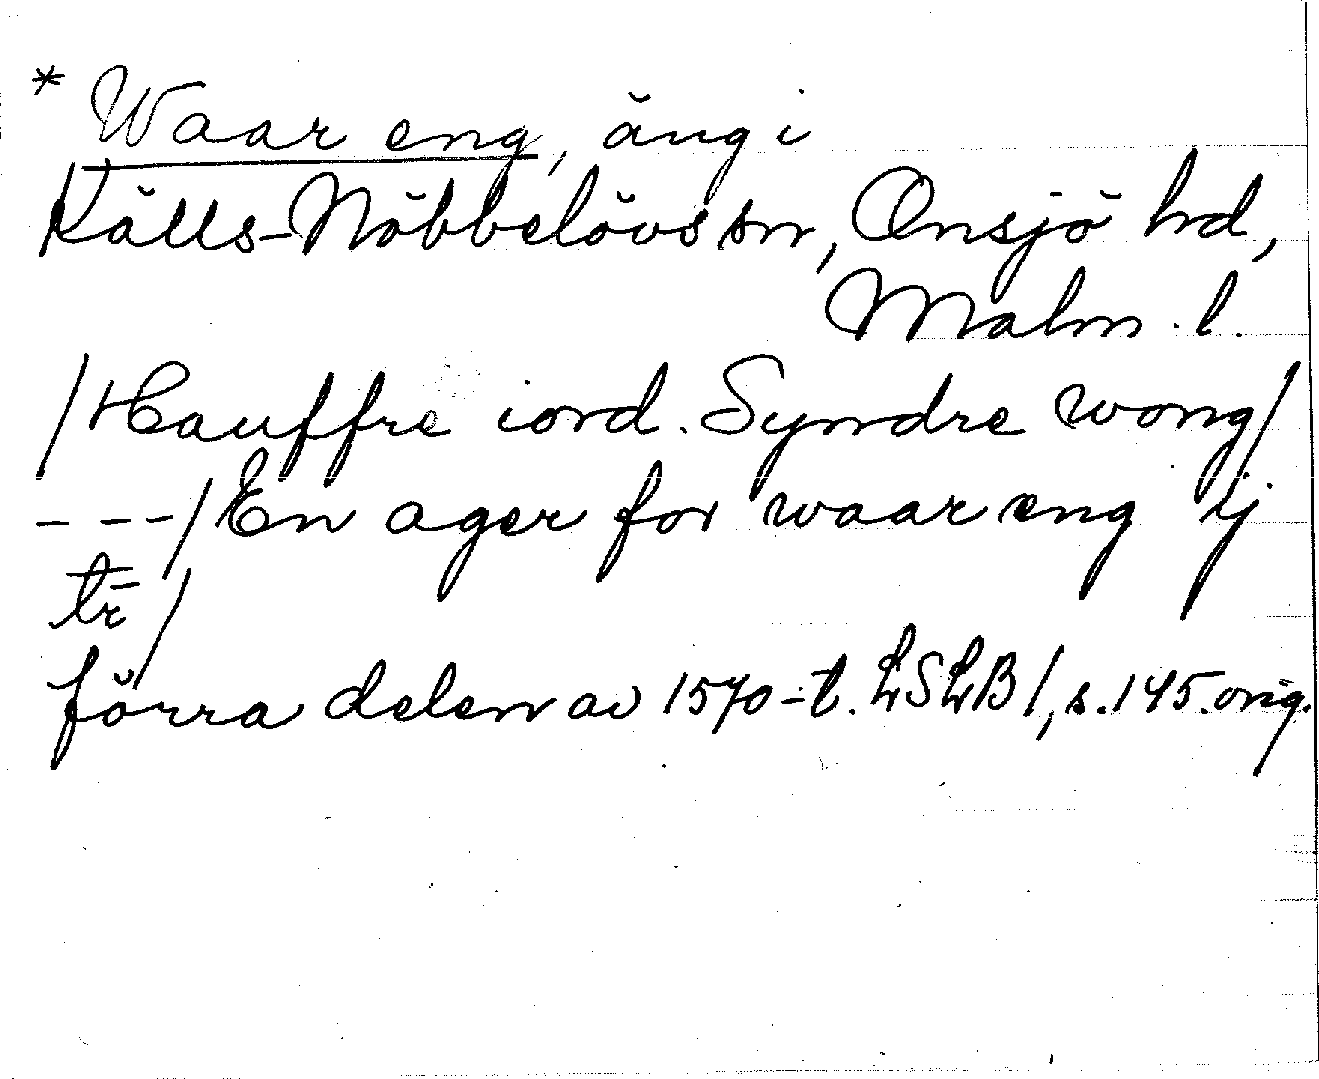 * Waar eng, äng i
Källs-Nöbbelövs sn, Onsjö hd,
Malm. l.
/Hauffre iord. Syndre wong/
---/En ager for waar eng ij
tr̄/
förra delen av 1570-t. LSLB 1, s. 145. orig.